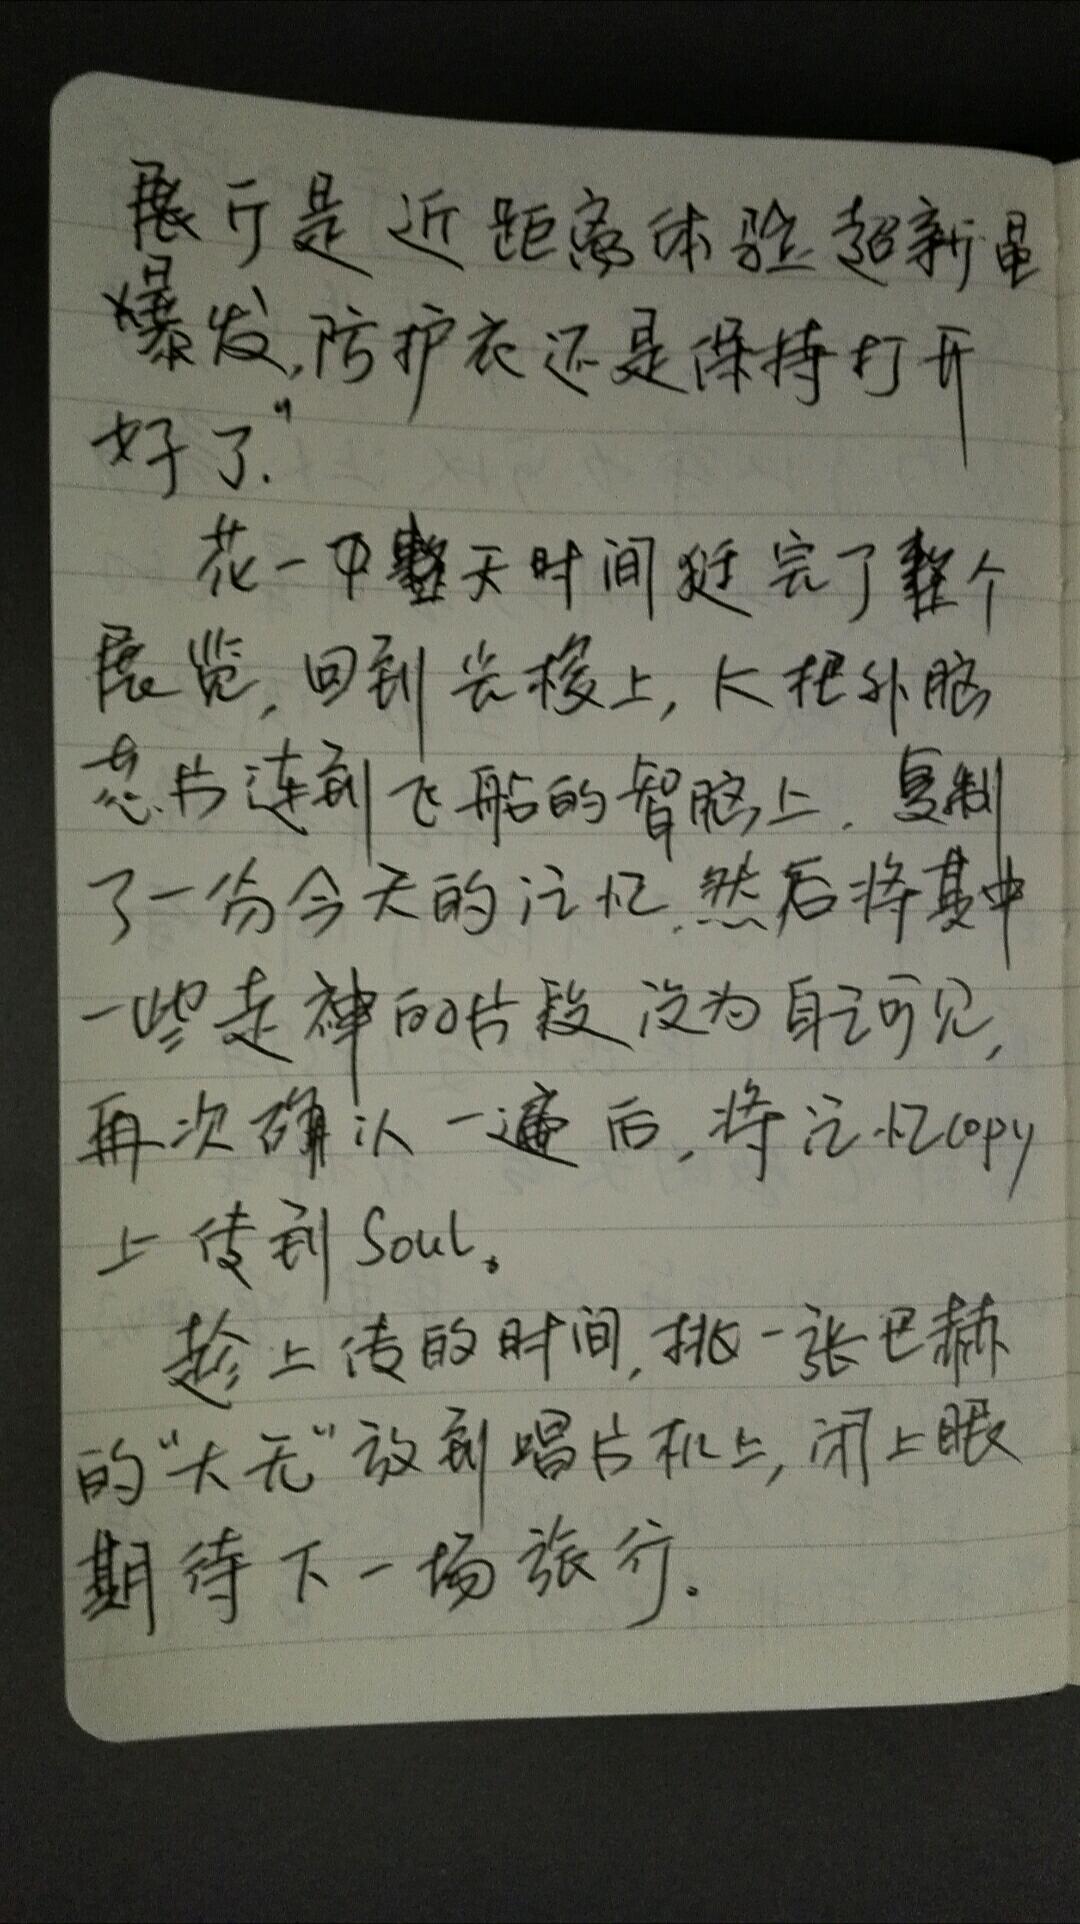 展厅是近距离体验超新星
爆发,防护衣还是保持打开
好了."
花一中整天时间逛完了整个
展览,回到长梭上,K把外脑
芯片连到飞船的智脑上.复制
了一份今天的记忆.然后将其中
一些走神的片段设为自己可见,
再次确认一遍后,将记忆copy
上传到Soul。
趁上传的时间,挑一张巴赫
的"大无"放到唱片机上,闭上眼
期待下一场旅行.